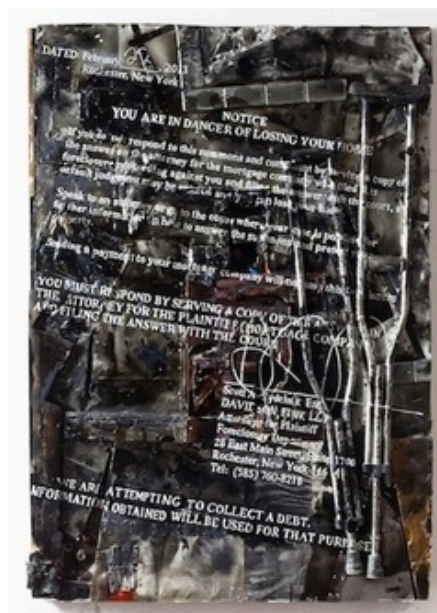 DATED: February 26, 2013
Rochester, New York
NOTICE
YOU ARE IN DANGER OF LOSING YOUR HOME
If you do not respond to this summons and complaint by serving a copy of
the answer on the attorney for the mortgage company who filed this
foreclosure proceeding against you and filing the answer with the court, a
default judgment may be entered and you can lose your home.
Speak to an attorney or go to the court where your case is pending for
further information on how to answer the summons and protect your
property.
Sending a payment to your mortgage company will not stop this
YOU MUST RESPOND BY SERVING A COPY OF THE ANSWER ON
THE ATTORNEY FOR THE PLAINTIFF (MORTGAGE COMPANY)
AND FILING THE ANSWER WITH THE COURT.
Esq.
DAVIDSON FINK LLP
Attorneys for Plaintiff
Foreclosure Department
28 East Main Street, Suite 1700
Rochester, New York
Tel: (585) 760-8218
WE ARE ATTEMPTING TO COLLECT A DEBT.
INFORMATION OBTAINED WILL BE USED FOR THAT PURPOSE.